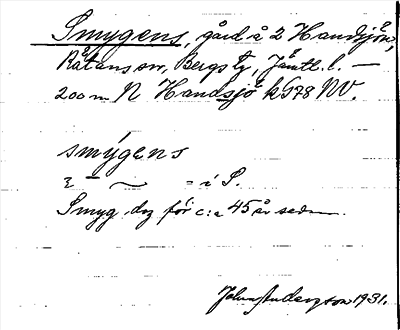 Smygens, gård å 2 Handsjön,
Råtans sn, Bergs tg, Jämtl. l. —
200 m N Handsjö k 578 NV.
smýgens
ξ — ~ = i S.
Smyg dog för c:a 45 år sedan.
Johan Anderson 1931.